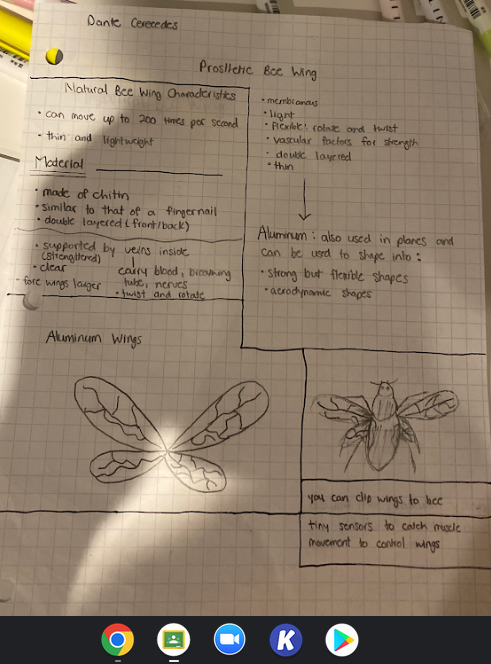 Dante Cerecedes
Prosthetic Bee Wing
Natural Bee Wing Characteristics
• can move up to 200 times per second
• thin and lightweight
Material
• made of chitin
• similar to that of a fingernail
• double layered (front/back)
• supported by veins inside
(strengthened)
• clear
- fore wings larger
carry blood, breathing
tube, nerves
• twist and rotate
• membranous
• light
• flexible: rotate and twist
• vascular factors for strength
• double layered
• thin
Aluminum: also used in planes and
can be used to shape into:
• strong but flexible shapes
• aerodynamic shapes
Aluminum Wings
you can clip wings to bee
tiny sensors to catch muscle
movement to control wings
K